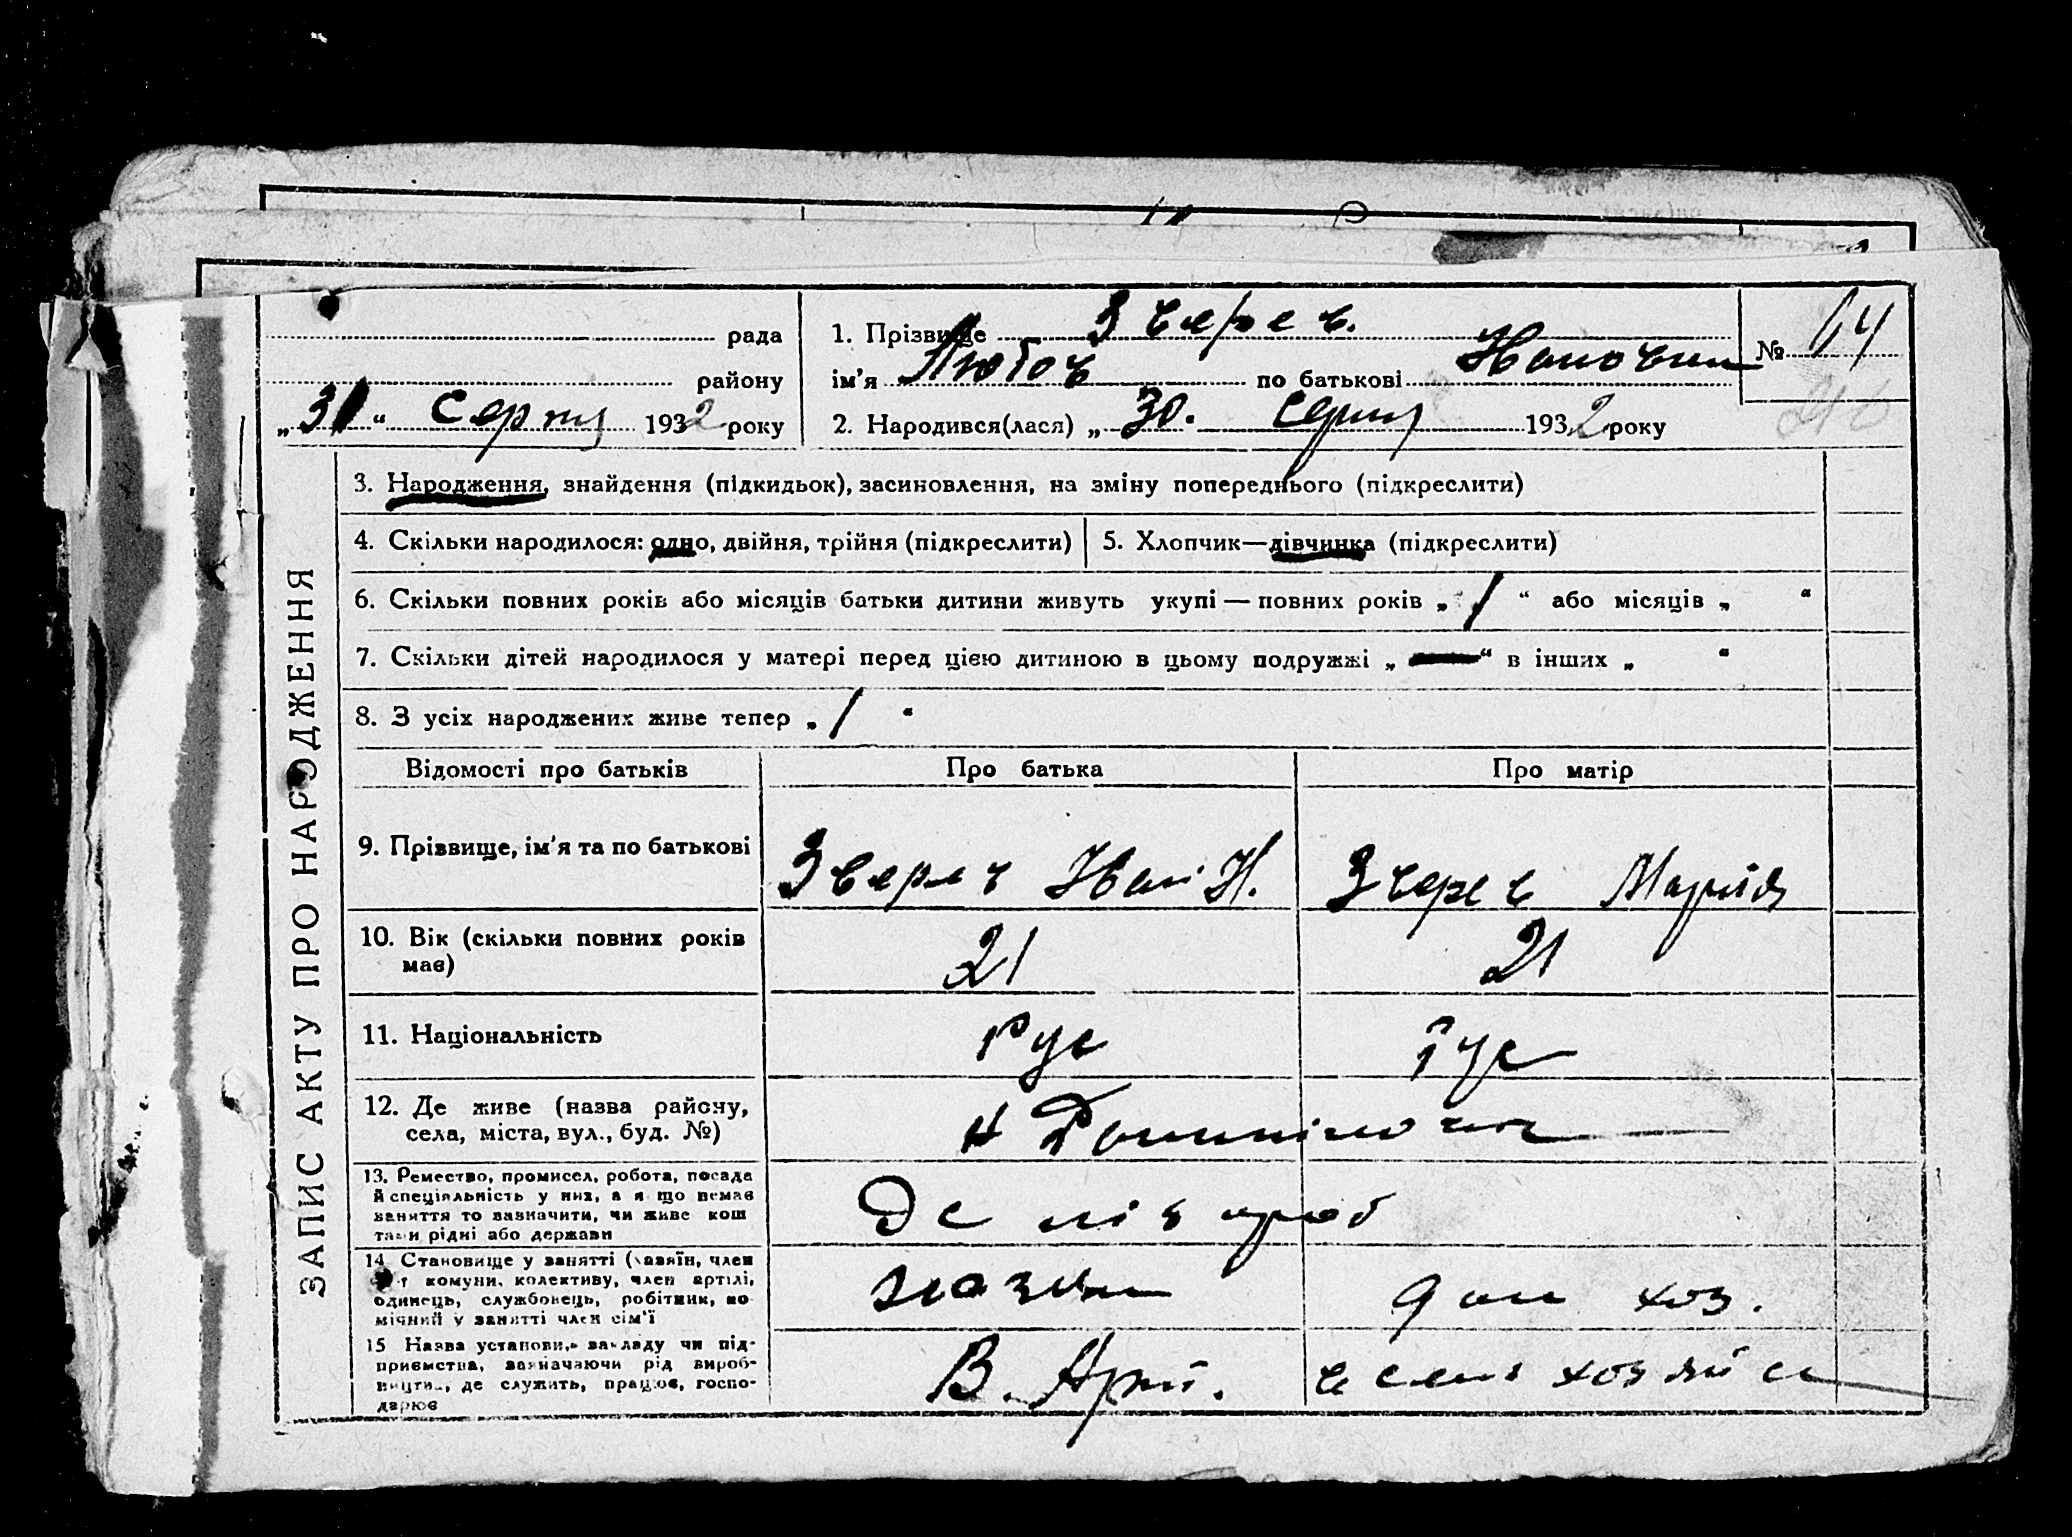 рада
района
району
„31“ Серпня 1932 року
1. Прізвище Зверев.
ім'я Любов по батькові Ивановна
2. Народився(лася) „30. серпня 1932 року
№ 64
ЗАПИС АКТУ ПРО НАРОДЖЕННЯ
3. Народження, знайдення (підкидьок), засиновлення, на зміну попереднього (підкреслити)
4. Скільки народилося: одно, двійня, трійня (підкреслити)
5. Хлопчик—дівчинка (підкреслити)
6. Скільки повних років або місяців батьки дитини живуть укупі — повних років „1“ або місяців „ “
7. Скільки дітей народилося у матері перед цією дитиною в цьому подружжі „—“ в інших „ “
8. З усіх народжених живе тепер „1 “
Відомості про батьків Про батька Про матір
9. Прізвище, ім'я та по батькові Зверев Иван И. Зверев Мария
10. Вік (скільки повних років 21 21
має)
11. Національність Рус Рус
12. Де живе (назва району,
села, міста, вул., буд. №)
13. Ремество, промисел, робота, посада
й спеціяльність у них, а якщо немає
заняття то зазначити, чи живе кош
тами рідні або держави
14. Становище у занятті (хазяїн, член
комуни, колективу, член артілі,
одинець, службовець, робітник, по-
мічний у занятті член сім'ї дом хоз.
15 Назва установи, закладу чи під-
приємства, зазначаючи рід вироб-
ництва, де служить, працює, госпо-
дарює
В. Арт.